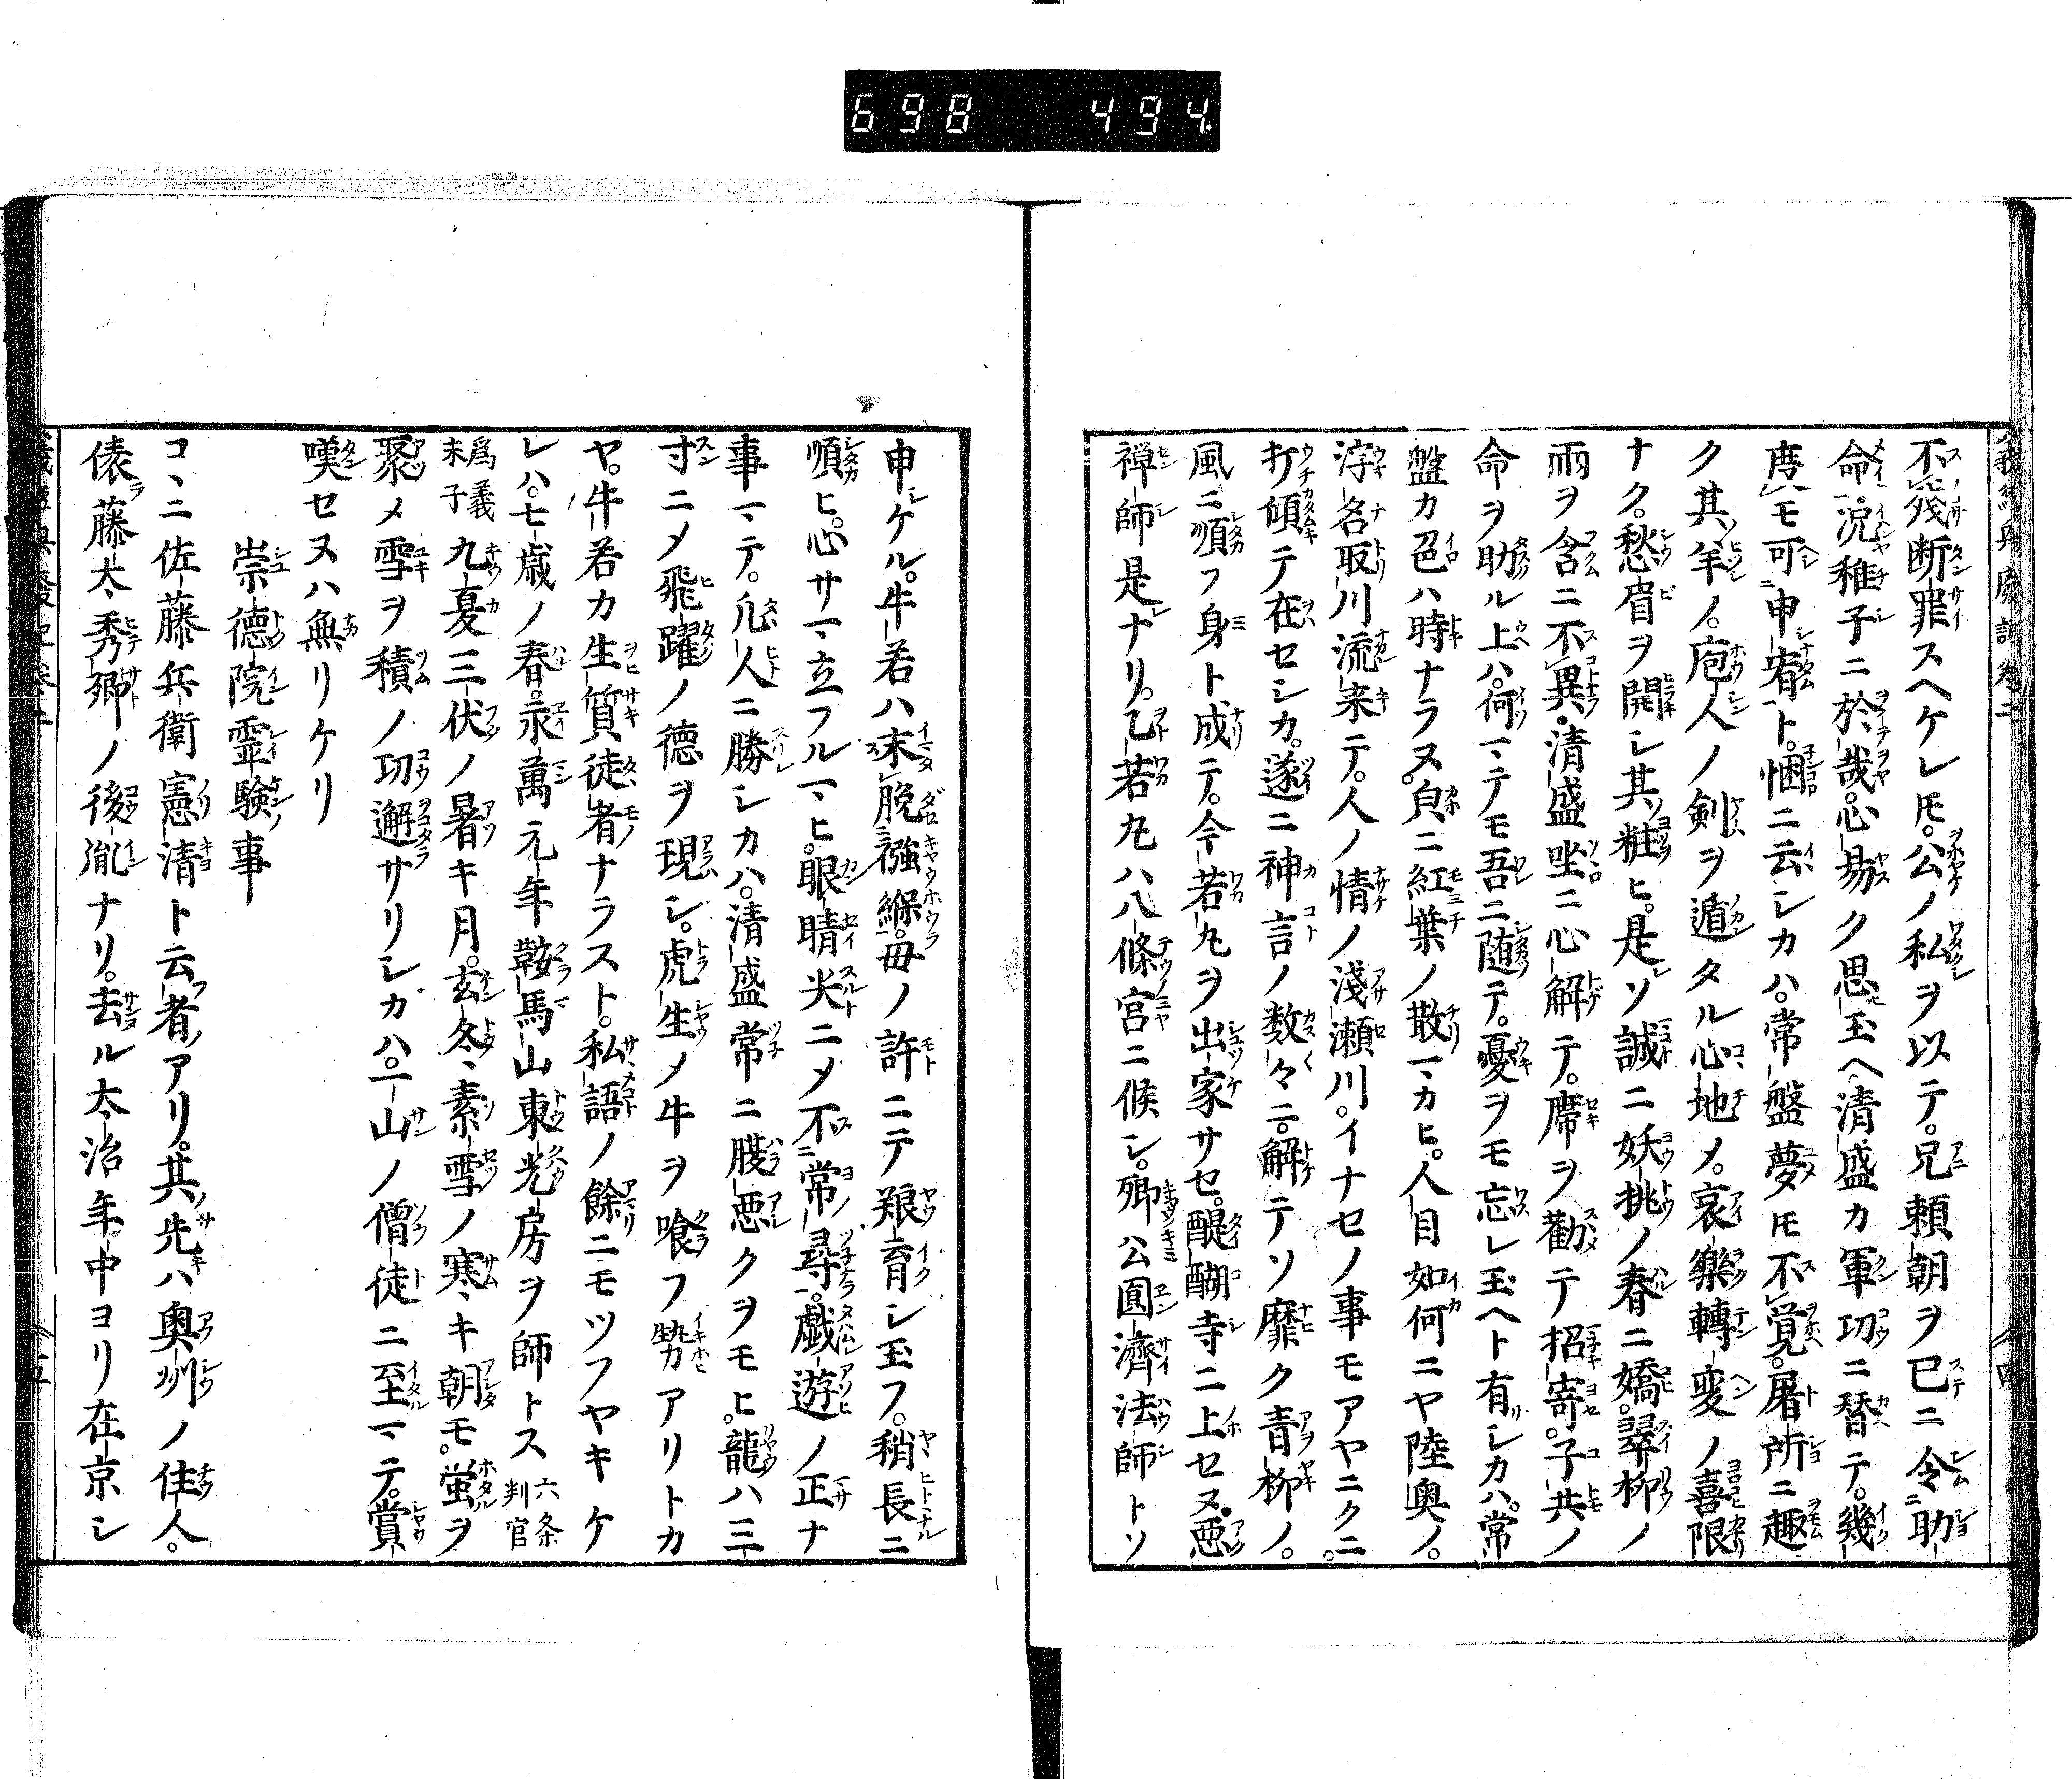 698 494
不殘断罪スヘケレ𪜈。公ノ私ヲ以テ。兄頼朝ヲ已ニ令助
命。況稚子ニ於哉。心易ク思玉ヘ清盛カ軍功ニ替テ。幾
度モ可申宥ト。悃ニ云シカハ。常盤夢𪜈不覚。屠所ニ趣
ク其羊ノ。庖人ノ剣ヲ遁タル心地メ。哀樂轉変ノ喜限
ナク。愁眉ヲ開シ其粧ヒ。是ソ誠ニ妖桃ノ春ニ嬌。翠柳ノ
雨ヲ含ニ不異。清盛坐ニ心解テ。席ヲ勸テ招寄。子共ノ
命ヲ助ル上ハ。何マテモ吾ニ随テ。憂ヲモ忘レ玉ヘト有シカハ。常
盤カ色ハ時ナラヌ。皃ニ紅葉ノ散マカヒ。人目如何ニヤ陸奥ノ。
浮名取川流来テ。人ノ情ノ淺瀬川。イナセノ事モアヤニクニ。
打傾テ在セシカ。遂ニ神言ノ数々ニ。解テソ靡ク青柳ノ。
風ニ順フ身ト成テ。今若丸ヲ出家サセ。醍醐寺ニ上セヌ。悪
禅師是ナリ。乙若丸ハ八條宮ニ候シ。卿公圓濟法師トソ
申ケル。牛若ハ未脱襁緥。毋ノ許ニテ艱育シ玉フ。稍長ニ
順ヒ。心サマ立フルマヒ。眼晴尖ニメ不常尋。戯遊ノ正ナ
事マテ。凡人ニ勝シカハ。清盛常ニ腹悪クヲモヒ。龍ハ三
寸ニメ飛躍ノ徳ヲ現シ。虎生メ牛ヲ喰フ勢アリトカ
ヤ。牛若カ生質徒者ナラスト。私語ノ餘ニモツフヤキケ
レハ。七歳ノ春。永萬元年鞍馬山東光房ヲ師トス六条判官
為義末子九夏三伏ノ暑キ月。玄冬素雪ノ寒キ朝モ。蛍ヲ
聚メ雪ヲ積ノ功邂サリシカハ。一山ノ僧徒ニ至マテ。賞
嘆セヌハ無リケリ
崇徳院霊験事
コヽニ佐藤兵衛憲清ト云者アリ。其先ハ奥州ノ住人。
俵藤太秀郷ノ後胤ナリ。去ル大治年中ヨリ在京シ